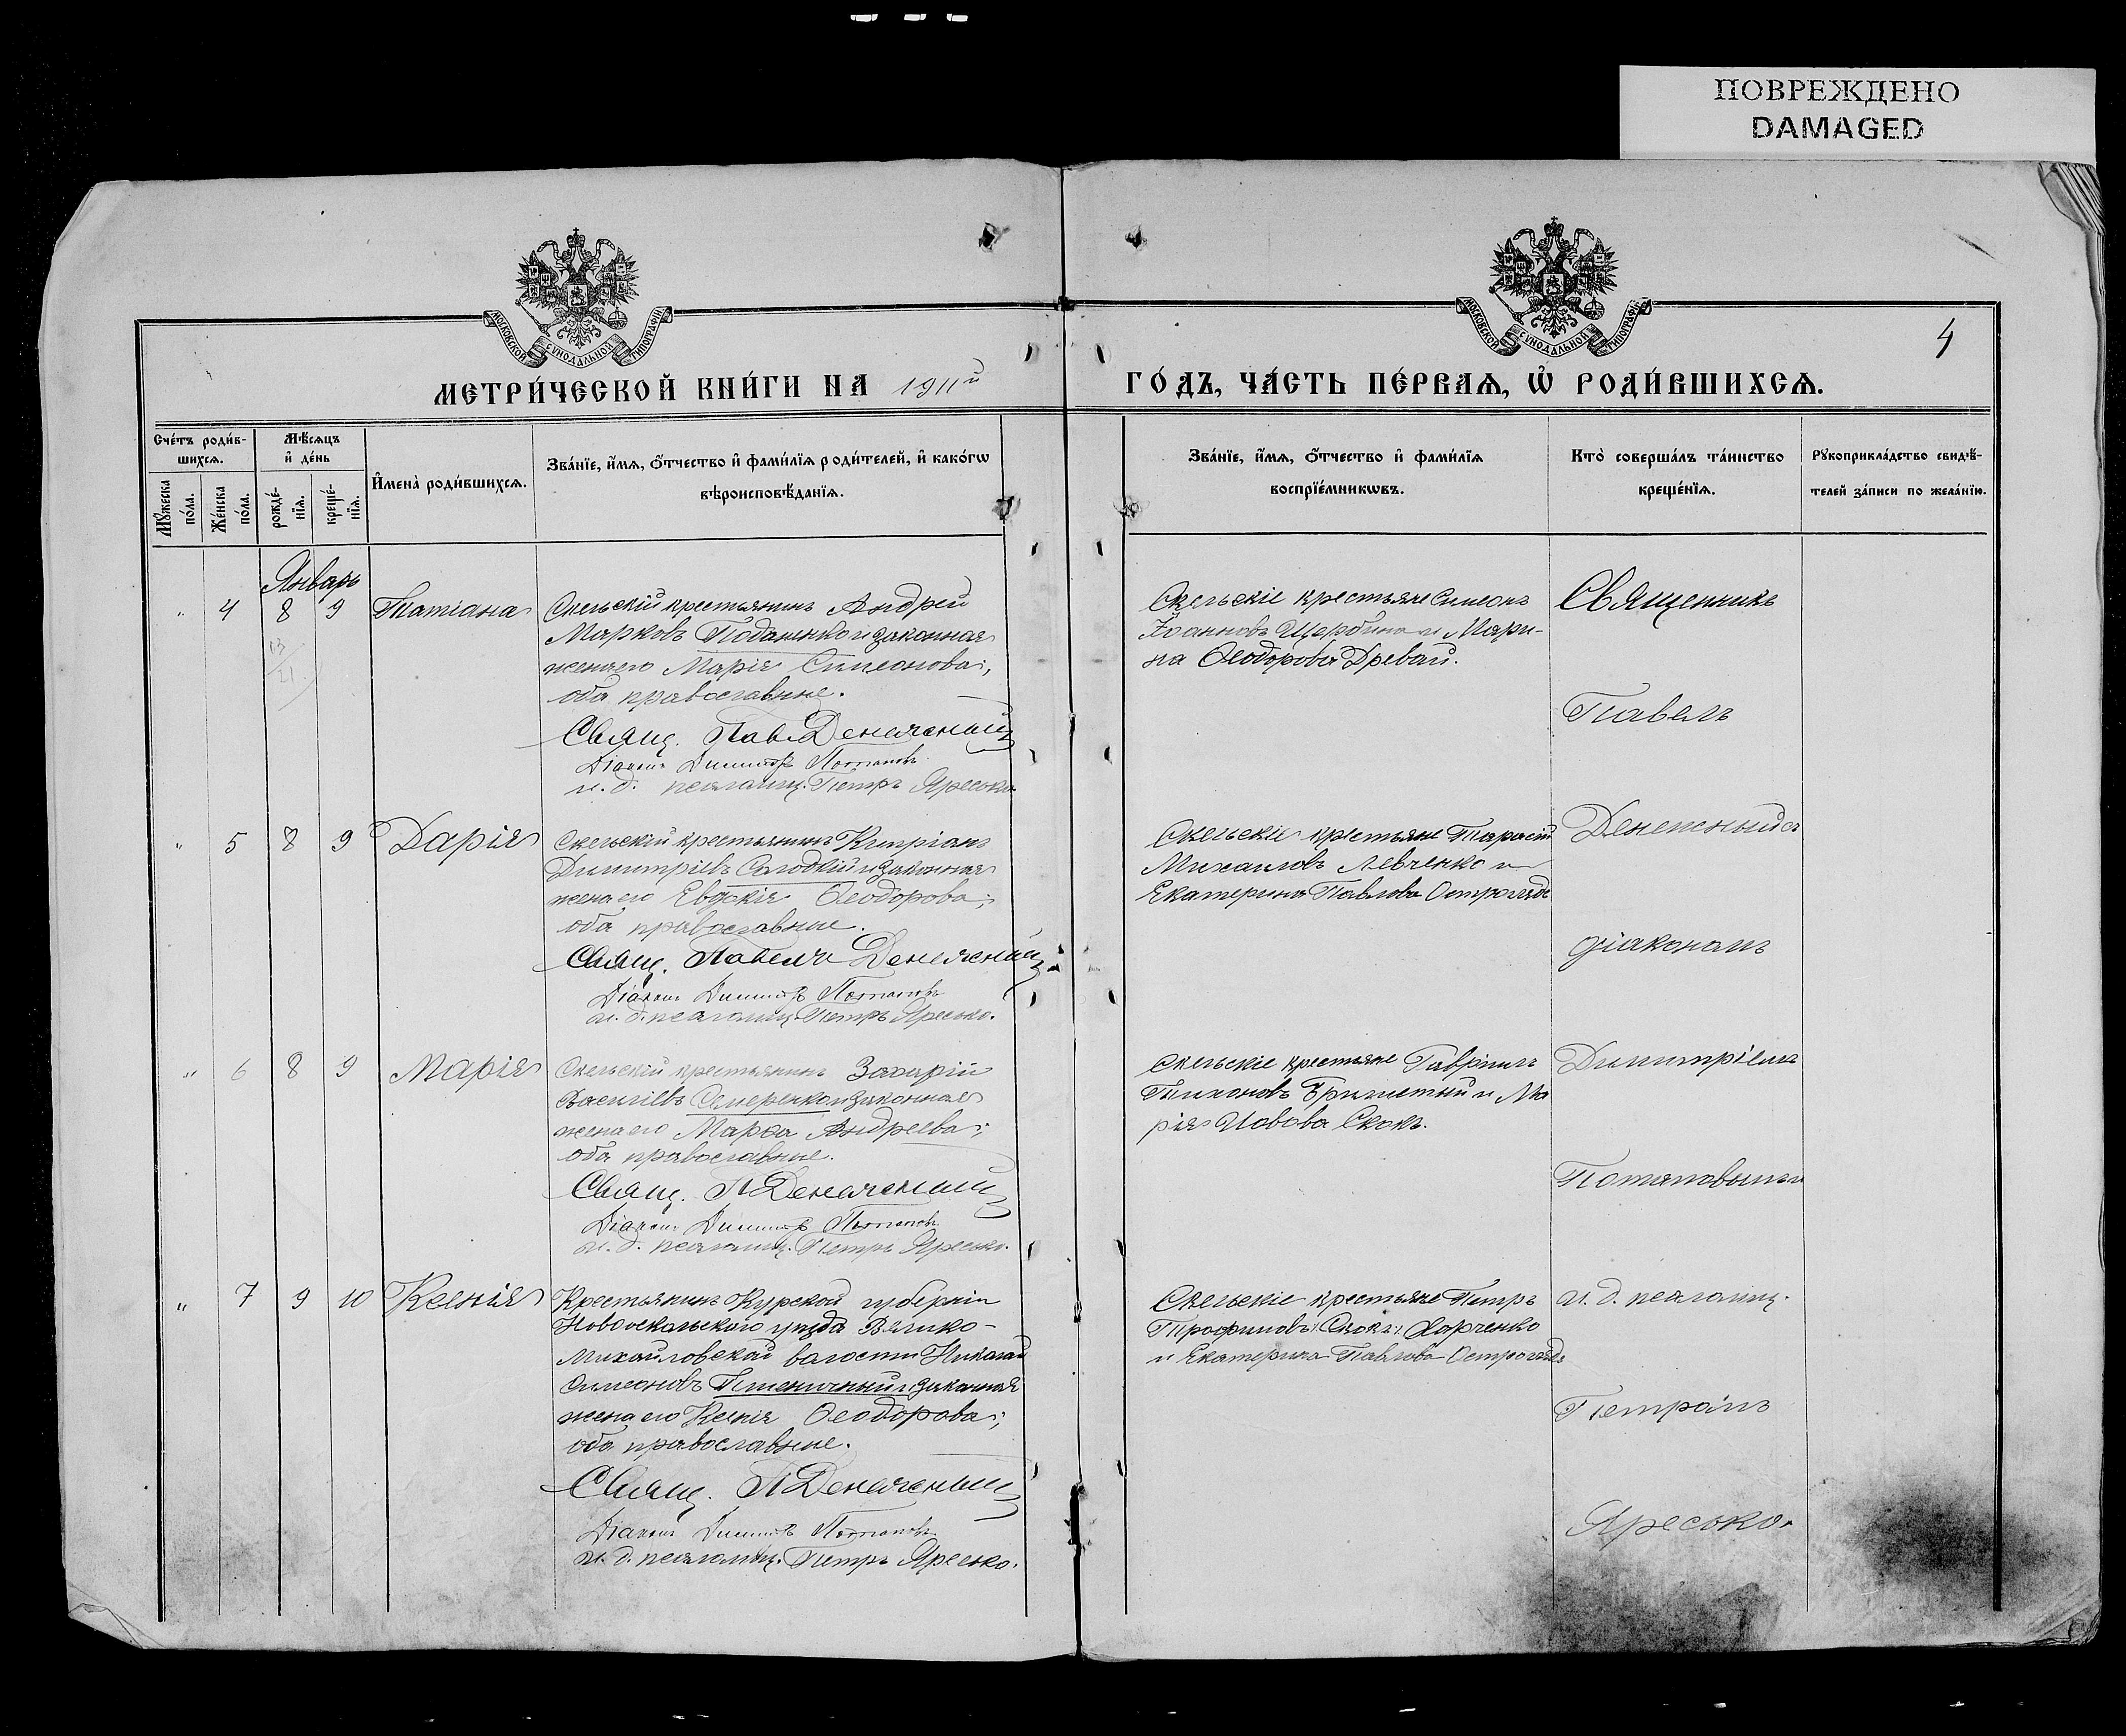 ПОВРЕЖДЕНО
DAMAGED
МОСКОВСКОЙ СѴНОДАЛЬНОЙ ТИПОГРАФІИ
МОСКОВСКОЙ СѴНОДАЛЬНОЙ ТИПОГРАФІИ
4
МЕТРИ́ЧЕСКОЙ КНИ́ГИ НА 1911й
ГО́ДЪ, ЧА́СТЬ ПЕ́РВАѦ, Ѡ҆ РОДИ́ВШИХСѦ.
Счéтъ роди́в-
шихсѧ.
Мꙋ́жеска
по́ла.
Же́нска
по́ла.
Мѣ́сѧцъ
и҆ де́нь
рожде́-
нїѧ.
креще́-
нїѧ.
И҆мена̀ роди́вшихсѧ.
Зва́нїе, и҆́мѧ, ѻ҆́тчество и҆ фами́лїѧ роди́телей, и҆ како́гѡ
вѣроисповѣ́данїѧ.
Зва́нїе, и҆́мѧ, ѻ҆́тчество и҆ фами́лїѧ
воспрїе́мникѡвъ.
Кто̀ соверша́лъ та́инство
креще́нїѧ.
Рꙋкоприкла́дство свидѣ́-
телей за́писи по жела́нїю.
Январь
" 4 8 9 Татіана
Скельскій крестьянинъ Андрей
Марковъ и законная
жена его Марія Симеонова;
оба православные.
Свящ. Пав. Денежный
Діаконъ Димитр Потаповъ
и. д. псаломщ. Петръ Яресько
Скельскіе крестьяне Симеонъ
Іоанновъ Щербина и Мари-
на Ѳеодорова Древаль.
Священникъ
Павелъ
" 5 8 9 Дарія
Скельскій крестьянинъ Кипріанъ
Димитріевъ Солодкій и законная
жена его Евдокія Ѳеодорова;
оба православные.
Свящ. Павелъ Денежный
Діаконъ Димитр Потаповъ
и. д. псаломщ. Петръ Яресько.
Скельскіе крестьяне Тарасій
Михаиловъ Левченко и
Екатерина Павлова Остроглядъ
Денежный съ
діакономъ
" 6 8 9 Марія
Скельскій крестьянинъ Захарій
Васильевъ Семеренко и законная
жена его Марѳа Андреева;
оба православные.
Свящ. П Денежный
Діаконъ Димитр Потаповъ
и. д. псаломщ. Петръ Яресько.
Скельскіе крестьяне Гавріилъ
Тихоновъ и Ма
рія Иовова Скокъ.
Димитріемъ
Потаповымъ и
" 7 9 10 Ксенія
Крестьянинъ Курской губерніи
Новооскольскаго уѣзда Велико-
Михайловской волости Николай
Симеоновъ Пшеничный и законная
жена его Ксенія Ѳеодорова;
оба православные.
Свящ. П Денежный
Діаконъ Димитр Потаповъ
и. д. псаломщ. Петръ Яресько.
Скельскіе крестьяне Петръ
Трофимовъ (Скокъ) Харченко
и Екатерина Павлова Остроглядъ
и. д. псаломщ.
Петромъ
Яресько.